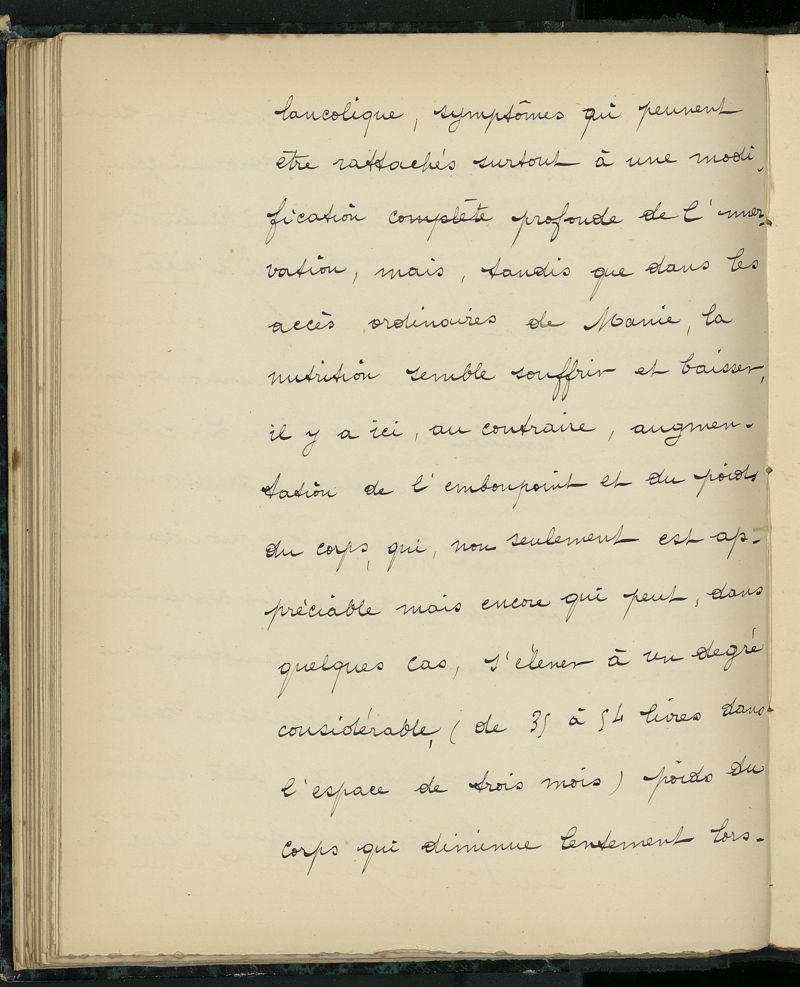 lancolique, symptômes qui peuvent
être rattachés surtout à une modi-
fication complète profonde de l'inner-
vation, mais, tandis que dans les
accès ordinaires de Manie, la
nutrition semble souffrir et baisser,
il y a ici, au contraire, augmen-
tation de l'embonpoint et du poids
du corps, qui, non seulement est ap-
préciable mais encore qui peut, dans
quelques cas, s'élever à un degré
considérable, (de 35 à 54 livres dans
l'espace de trois mois) poids du
corps qui diminue lentement lors-